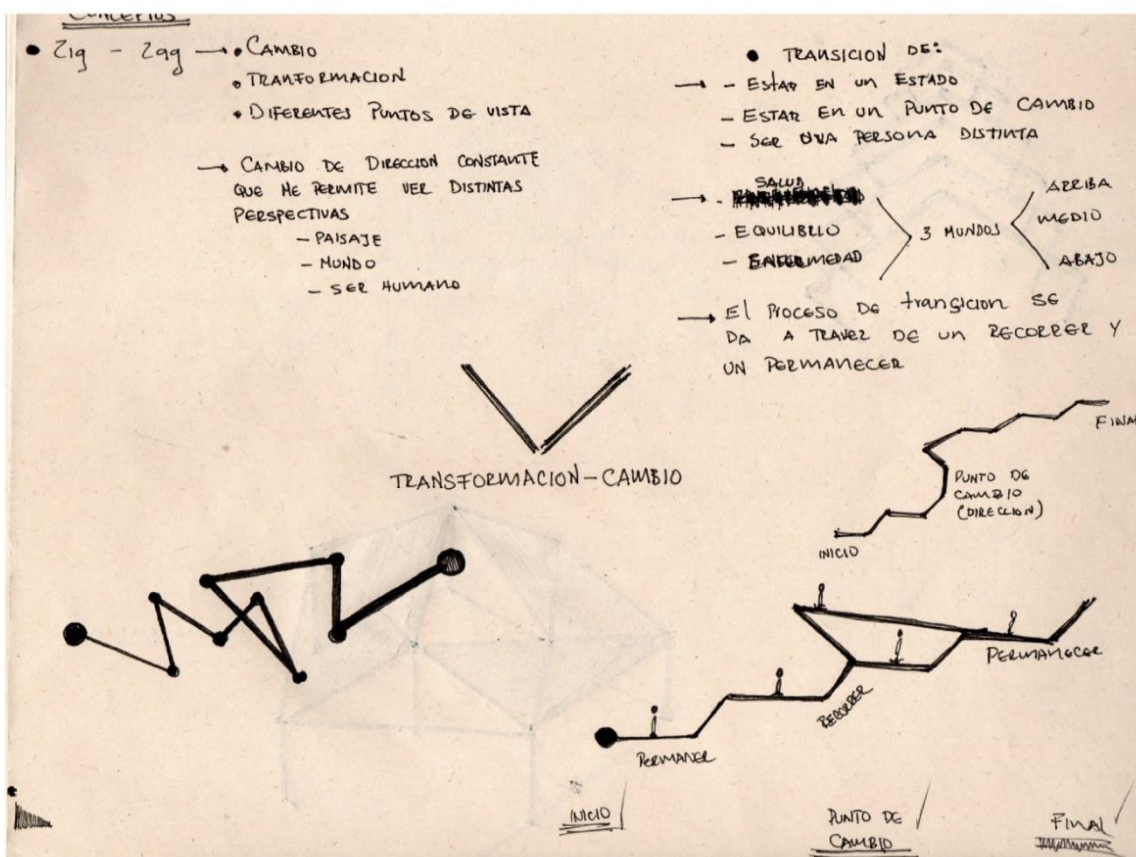 CONCEPTOS
• Zig - Zag → • CAMBIO
• TRANFORMACION
• DIFERENTES PUNTOS DE VISTA
→ CAMBIO DE DIRECCION CONSTANTE
QUE ME PERMITE VER DISTINTAS
PERSPECTIVAS
- PAISAJE
- MUNDO
- SER HUMANO
• TRANSICION DE:
→ - ESTAR EN UN ESTADO
- ESTAR EN UN PUNTO DE CAMBIO
- SER UNA PERSONA DISTINTA
SALUD
- EQUILIBRIO
- ENFERMEDAD
3 MUNDOS
ARRIBA
MEDIO
ABAJO
→ El PROCESO DE transicion SE
DA A TRAVEZ DE UN RECORRER Y
UN PERMANECER
TRANSFORMACION - CAMBIO
FINAL
PUNTO DE
CAMBIO
(DIRECCION)
INICIO
PERMANECER
RECORRER
PERMANER
INICIO
PUNTO DE
CAMBIO
FINAL